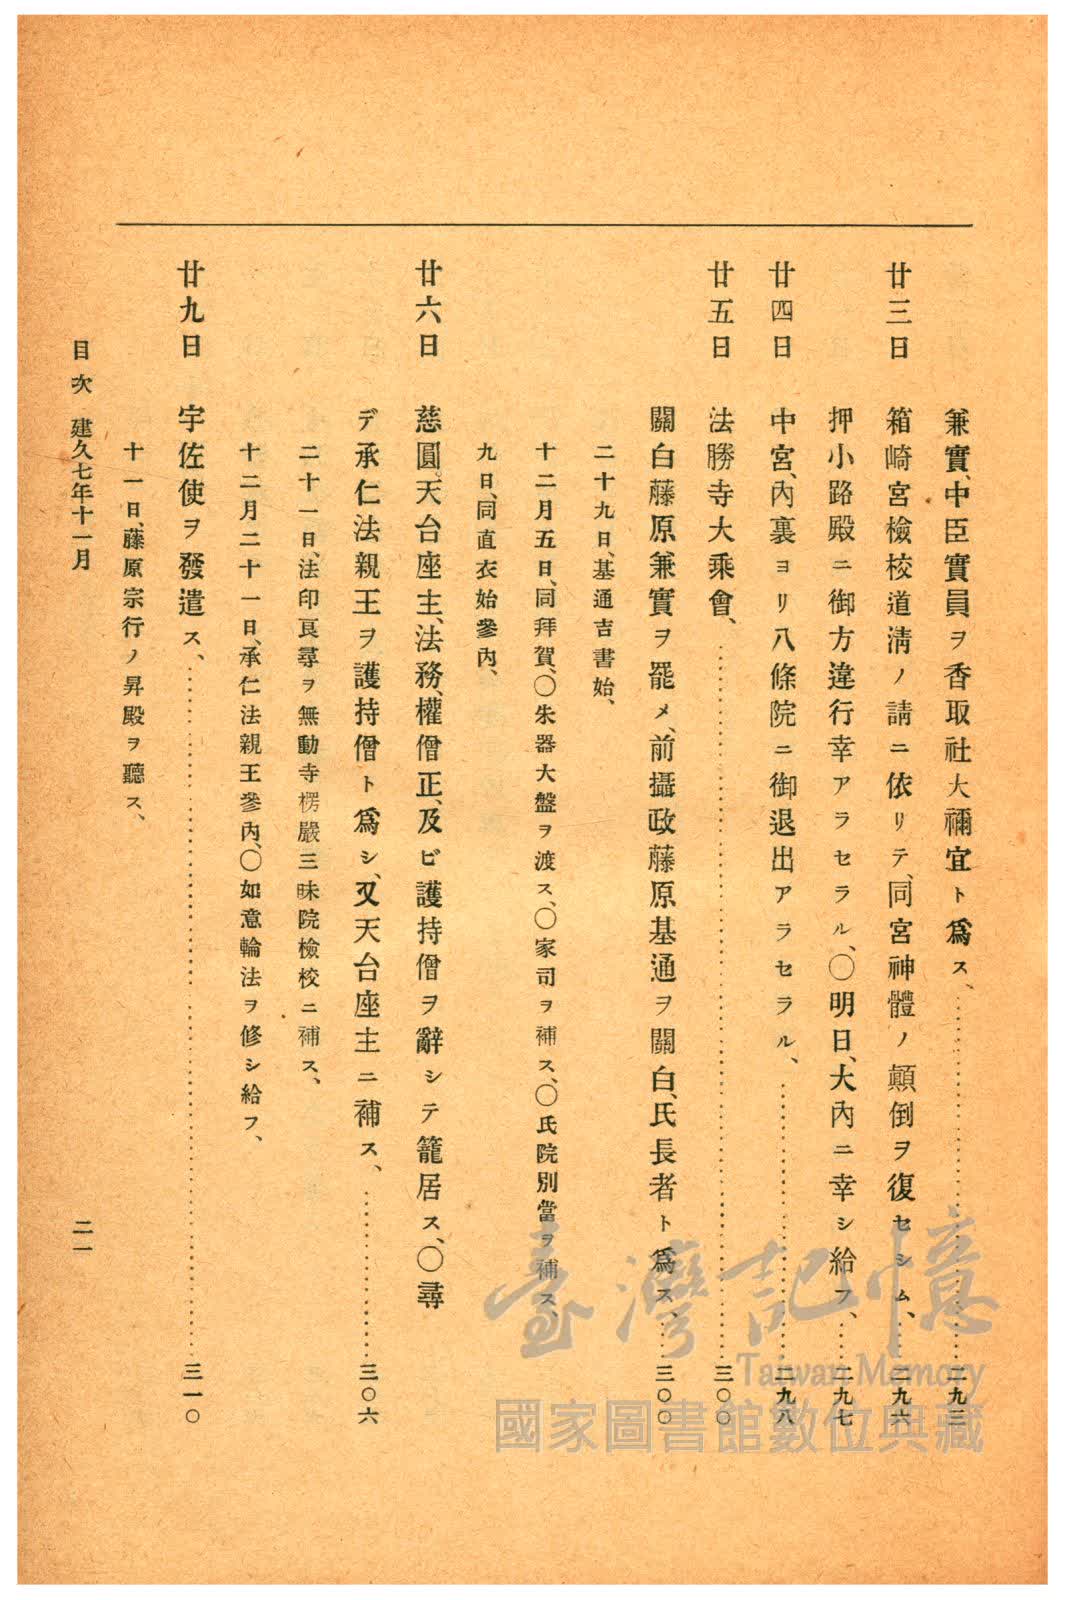 兼實、中臣實員ヲ香取社大禰宜ト爲ス、…………二九三
廿三日 箱崎宮檢校道淸ノ請ニ依リテ、同宮神體ノ顚倒ヲ復セシム、…二九六
押小路殿ニ御方違行幸アラセラル、〇明日、大內ニ幸シ給フ、…二九七
廿四日 中宮、內裏ヨリ八條院ニ御退出アラセラル、…………二九八
廿五日 法勝寺大乘會、…………三〇〇
關白藤原兼實ヲ罷メ、前攝政藤原基通ヲ關白、氏長者ト爲ス、…三〇〇
二十九日、基通吉書始、
十二月五日、同拜賀、〇朱器大盤ヲ渡ス、〇家司ヲ補ス、〇氏院別當ヲ補ス、
九日、同直衣始參內、
廿六日 慈圓、天台座主、法務、權僧正、及ビ護持僧ヲ辭シテ籠居ス、〇尋
デ承仁法親王ヲ護持僧ト爲シ、又天台座主ニ補ス、…………三〇六
二十一日、法印良尋ヲ無動寺楞嚴三昧院檢校ニ補ス、
十二月二十一日、承仁法親王參內、〇如意輪法ヲ修シ給フ、
廿九日 宇佐使ヲ發遣ス、…………三一〇
十一日、藤原宗行ノ昇殿ヲ聽ス、
目次 建久七年十一月 二一
臺灣記憶
Taiwan Memory
國家圖書館數位典藏